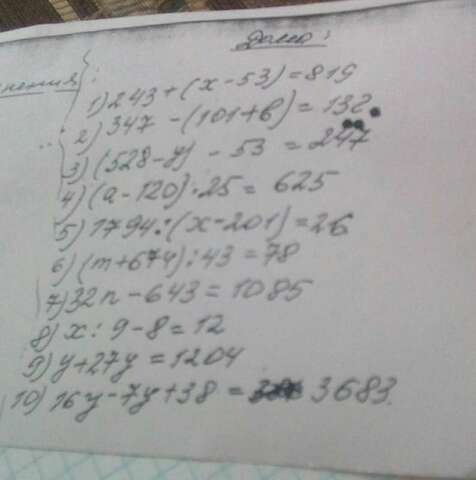 Дома:
1) 243 + (x - 53) = 819
2) 347 - (101 + в) = 132
3) (528 - y) - 53 = 247
4) (a - 120) · 25 = 625
5) 1794 : (x - 201) = 26
6) (m + 674) : 43 = 78
7) 32n - 643 = 1085
8) x : 9 - 8 = 12
9) y + 27y = 1204
10) 16y - 7y + 38 = 3683.